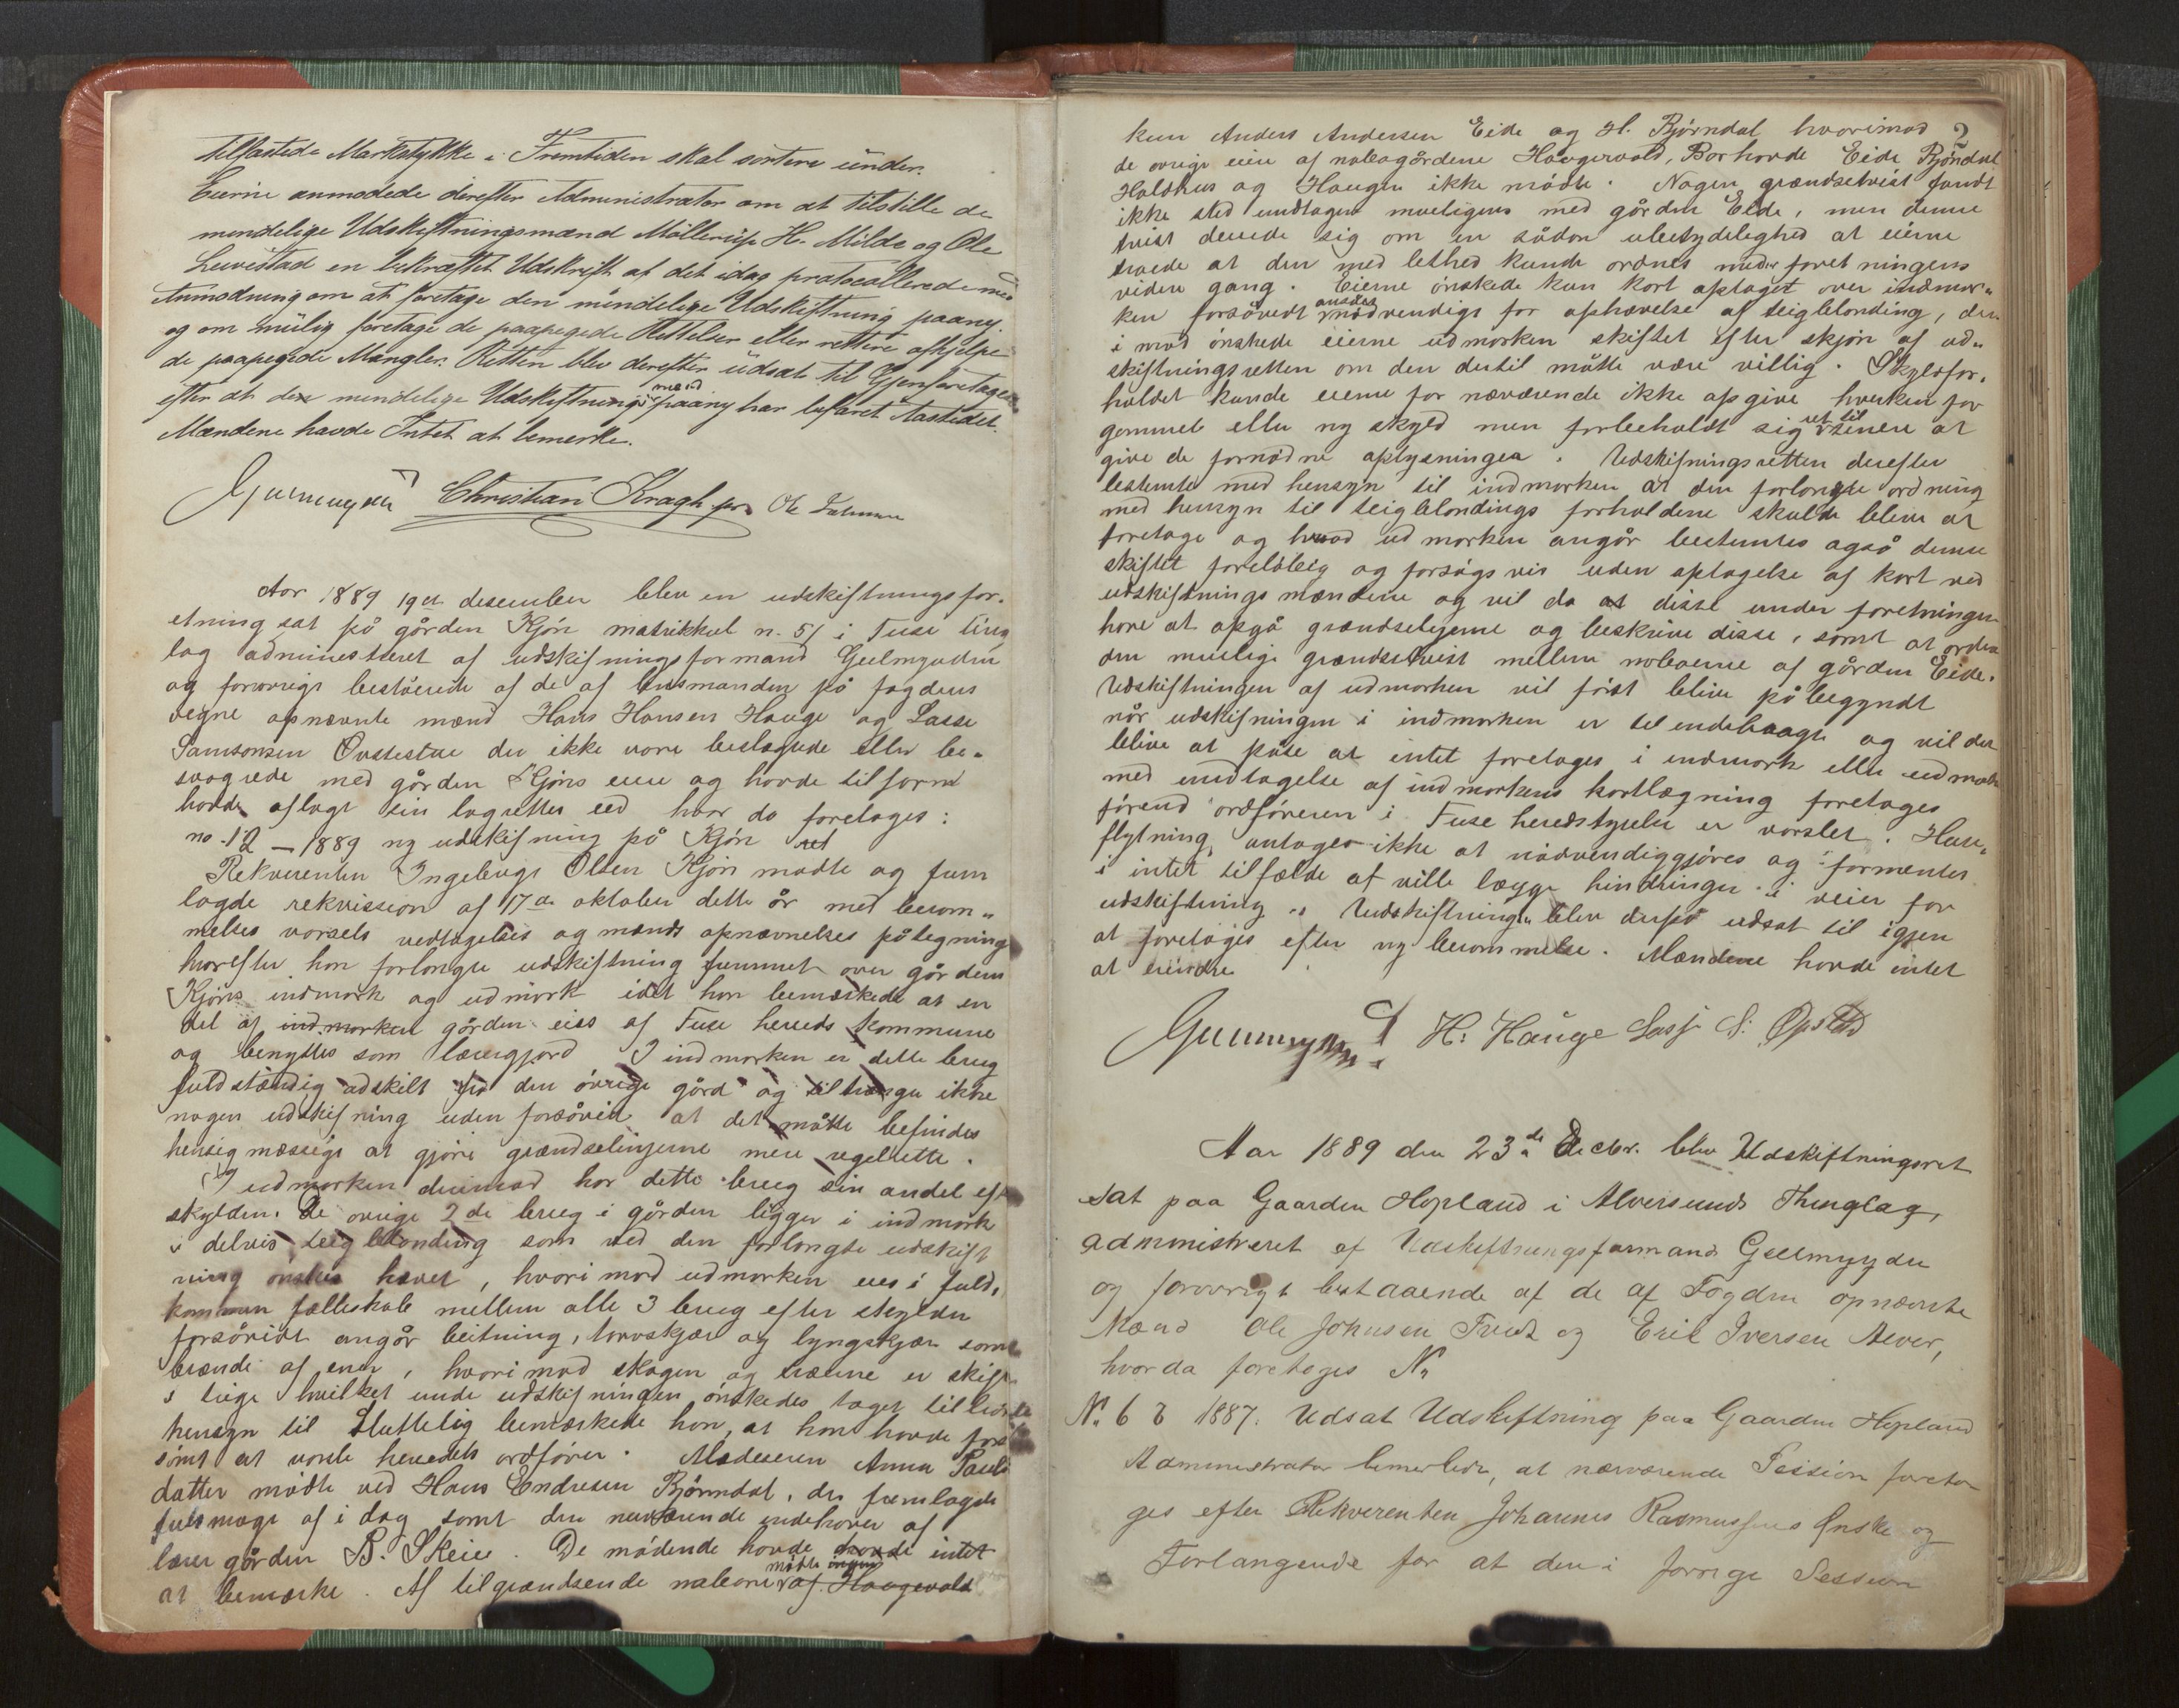 tilfæstede Markstykke i Fremtiden skal sortere under.
Eierne anmodede derefter Administrator om at tilstille de
mindelige Udskiftningsmænd Möllerup H. Milde og Ole
en bekræftet Udskrift af det idag protocollerede med
Anmodning om at foretage den mindelige Udskiftning paany
og om mulig foretage de paapegede Rettelser eller rettere afhjelpe
de paapegede Mangler. Retten blev derefter udsat til Gjenforetagen
efter at den mindelige Udskiftnings mænd paany har befaret Aastedet.
Mændene havde Intet at bemerke.
Geelmuyden Christian Kragh Ole
Aar 1889 19de desember blev en udskiftningsfor-
etning sat på gården Kjøn matrikkul n. 51 i Fuse ting
lag administreret af udskifningsformand Geelmyden
og forøvrigt bestående af de af lensmanden på fogdens
vegne opnævnte mænd Hans Hansen Hauge og Lasse
Samsonsen der ikke vare beslægtede eller be-
svogrede med gården Kjøns eiere og havde tilforn
havde aflagt sin lagrettes eed hvor da foretages:
no. 12 - 1889 ny udskifning på Kjøn
Rekvirenten Ingeborg Olsen Kjøn mødte og frem
lagde rekvission af 17de oktober dette år med beram-
melses varsels vedtagelses og mænds opnævnelses påtegning
hvorefter hun forlangte udskiftning fremmet over gården
Kjøns indmark og udmark idet hun bemærkede at en
del af indmarken gården eies af Fuse hereds kommune
og benyttes som lærergjord I indmarken er dette brug
fuldstændig adskilt fra den øvrige gård og tiltrænger ikke
nogen udskifning uden forsåvidt at det måtte befindes
hensigmæssigt at gjøre grændselinjerne mere regelrette.
I udmarken derimod har dette brug sin andel efter
skylden. De øvrige 2de brug i gården ligger i indmark
i delvis teigblanding som ved den forlangte udskift
ning ønskes hævet, hvorimod udmarken eies i fuld-
kommen fælleskab mellem alle 3 brug efter skylden
forsåvidt angår beitning, torvskjær og lyngskjær samt
brænde af ener, hvorimod skogen og træerne er skift
i teige hvilket under udskifningen ønskedes taget tilbørlig
hensyn til Sluttelig bemærkede hun, at hun havde for-
sømt at varsle heredets ordfører. Mødeseren Anna Pauls
datter mødte ved Hans Endresen Bjørndal, der fremlagde
fuldmagt af i dag samt den nuværende indehaver af
lærergården B. Skeie. De mødende havde havde intet
at bemærke. Af tilgrændsende naboer mødte ingen af Haugevold
2
kun Anders Andersen Eide og H. Bjørndal hvorimod
de øvrige eiere af nabogårdene Haugevold, Barhovde Eide Bjørndal
Holdhus og Haugen ikke mødte. Nogen grændsetvist fandt
ikke sted undtagen muligens med gården Eide, men denne
tvist dreiede sig om en sådan ubetydelighed at eierne
troede at den med lethed kunde ordnes under foretningens
videre gang. Eierne ønskede kun kart optaget over indmar-
ken forsåvidt ansåes nødvendigt for ophævelse af teigblanding, der-
imod ønskede eierne udmarken skiftet efter skjøn af ud-
skiftningsretten om den dertil måtte være villig. Skyldfor-
holdet kunde eierne for nærværende ikke opgive hverken for
gammel eller ny skyld men forbeholdt sig ret til senere at
give de fornødne oplysninger. Udskifningsretten derefter
bestemte med hensyn til indmarken at den forlangte ordning
med hensyn til teigblandings forholdene skulde blive at
foretage og hvad udmarken angår bestemtes også denne
skiftet foreløbig og forsøgsvis uden optagelse af kart ved
udskiftningsmændene og vil da at disse under foretningen
have at opgå grændselinjerne og beskrive disse, samt at ordne
den mulige grændsetvist mellem naboerne af gården Eide.
Udskiftningen af udmarken vil først blive påbegyndt
når udskifningen i indmarken er tilendebragt og vil der
blive at påse at intet foretages i indmark eller udmark
med undtagelse af indmarkens kartlægning foretages
førend ordføreren i Fuse heredstyrelse er varslet. Huse-
flytning antages ikke at nødvendiggjøres og formentes
i intet tilfælde at ville lægge hindringer i veien for
udskiftning. Udskiftningen blev derpå udsat til igjen
at foretages efter ny berammelse. Mændene havde intet
at erindre
Geelmuyden H: Hauge Lasse S: Opstad
Aar 1889 den 23de Decbr. blev Udskiftningsret
sat paa Gaarden Hopland i Alversunds Thinglag,
administreret af Udskiftningsformand Geelmuyden
og forøvrigt bestaaende af de af Fogden opnævnte
Mænd Ole Johnsen Tveit og Erik Iversen Alver,
hvor da foretoges No
No. 6 1887. Udsat Udskiftning paa Gaarden Hopland
Administrator bemerkede, at nærværende Session foreta
ges efter Rekvirenten Johannes Rasmussens Ønske og
Forlangende for at den i forrige Session